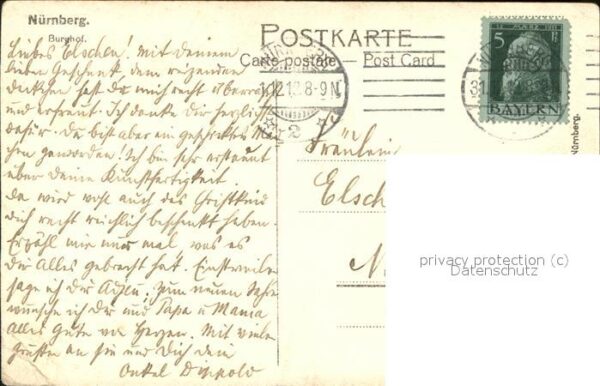 Nürnberg.
Burghof.
POSTKARTE
Carte postale — Post Card
Liebes Elschen! Mit Deinem
lieben Geschenk, dem reizenden
Deckchen hast Du mich recht überrascht
und erfreut. Ich danke Dir herzlich
dafür. Du bist aber ein geschicktes Mäd-
chen geworden! Ich bin sehr erstaunt
über Deine Kunstfertigkeit.
Da wird wohl auch das Christkind
Dich recht reichlich beschenkt haben.
Erzähl mir nur mal, was es
Dir Alles gebracht hat. Einstweilen
sage ich Dir Zum neuen Jahre
wünsche ich Dir und Papa u Mama
Alles Gute von Herzen. Mit vielen
Grüßen an sie und Dich Dein
Onkel Dippold
31.12.13.8-9N
2
5
PF
BAYERN
31.
Fräulein
Elsch
N
Nürnberg.
privacy protection (c)
Datenschutz